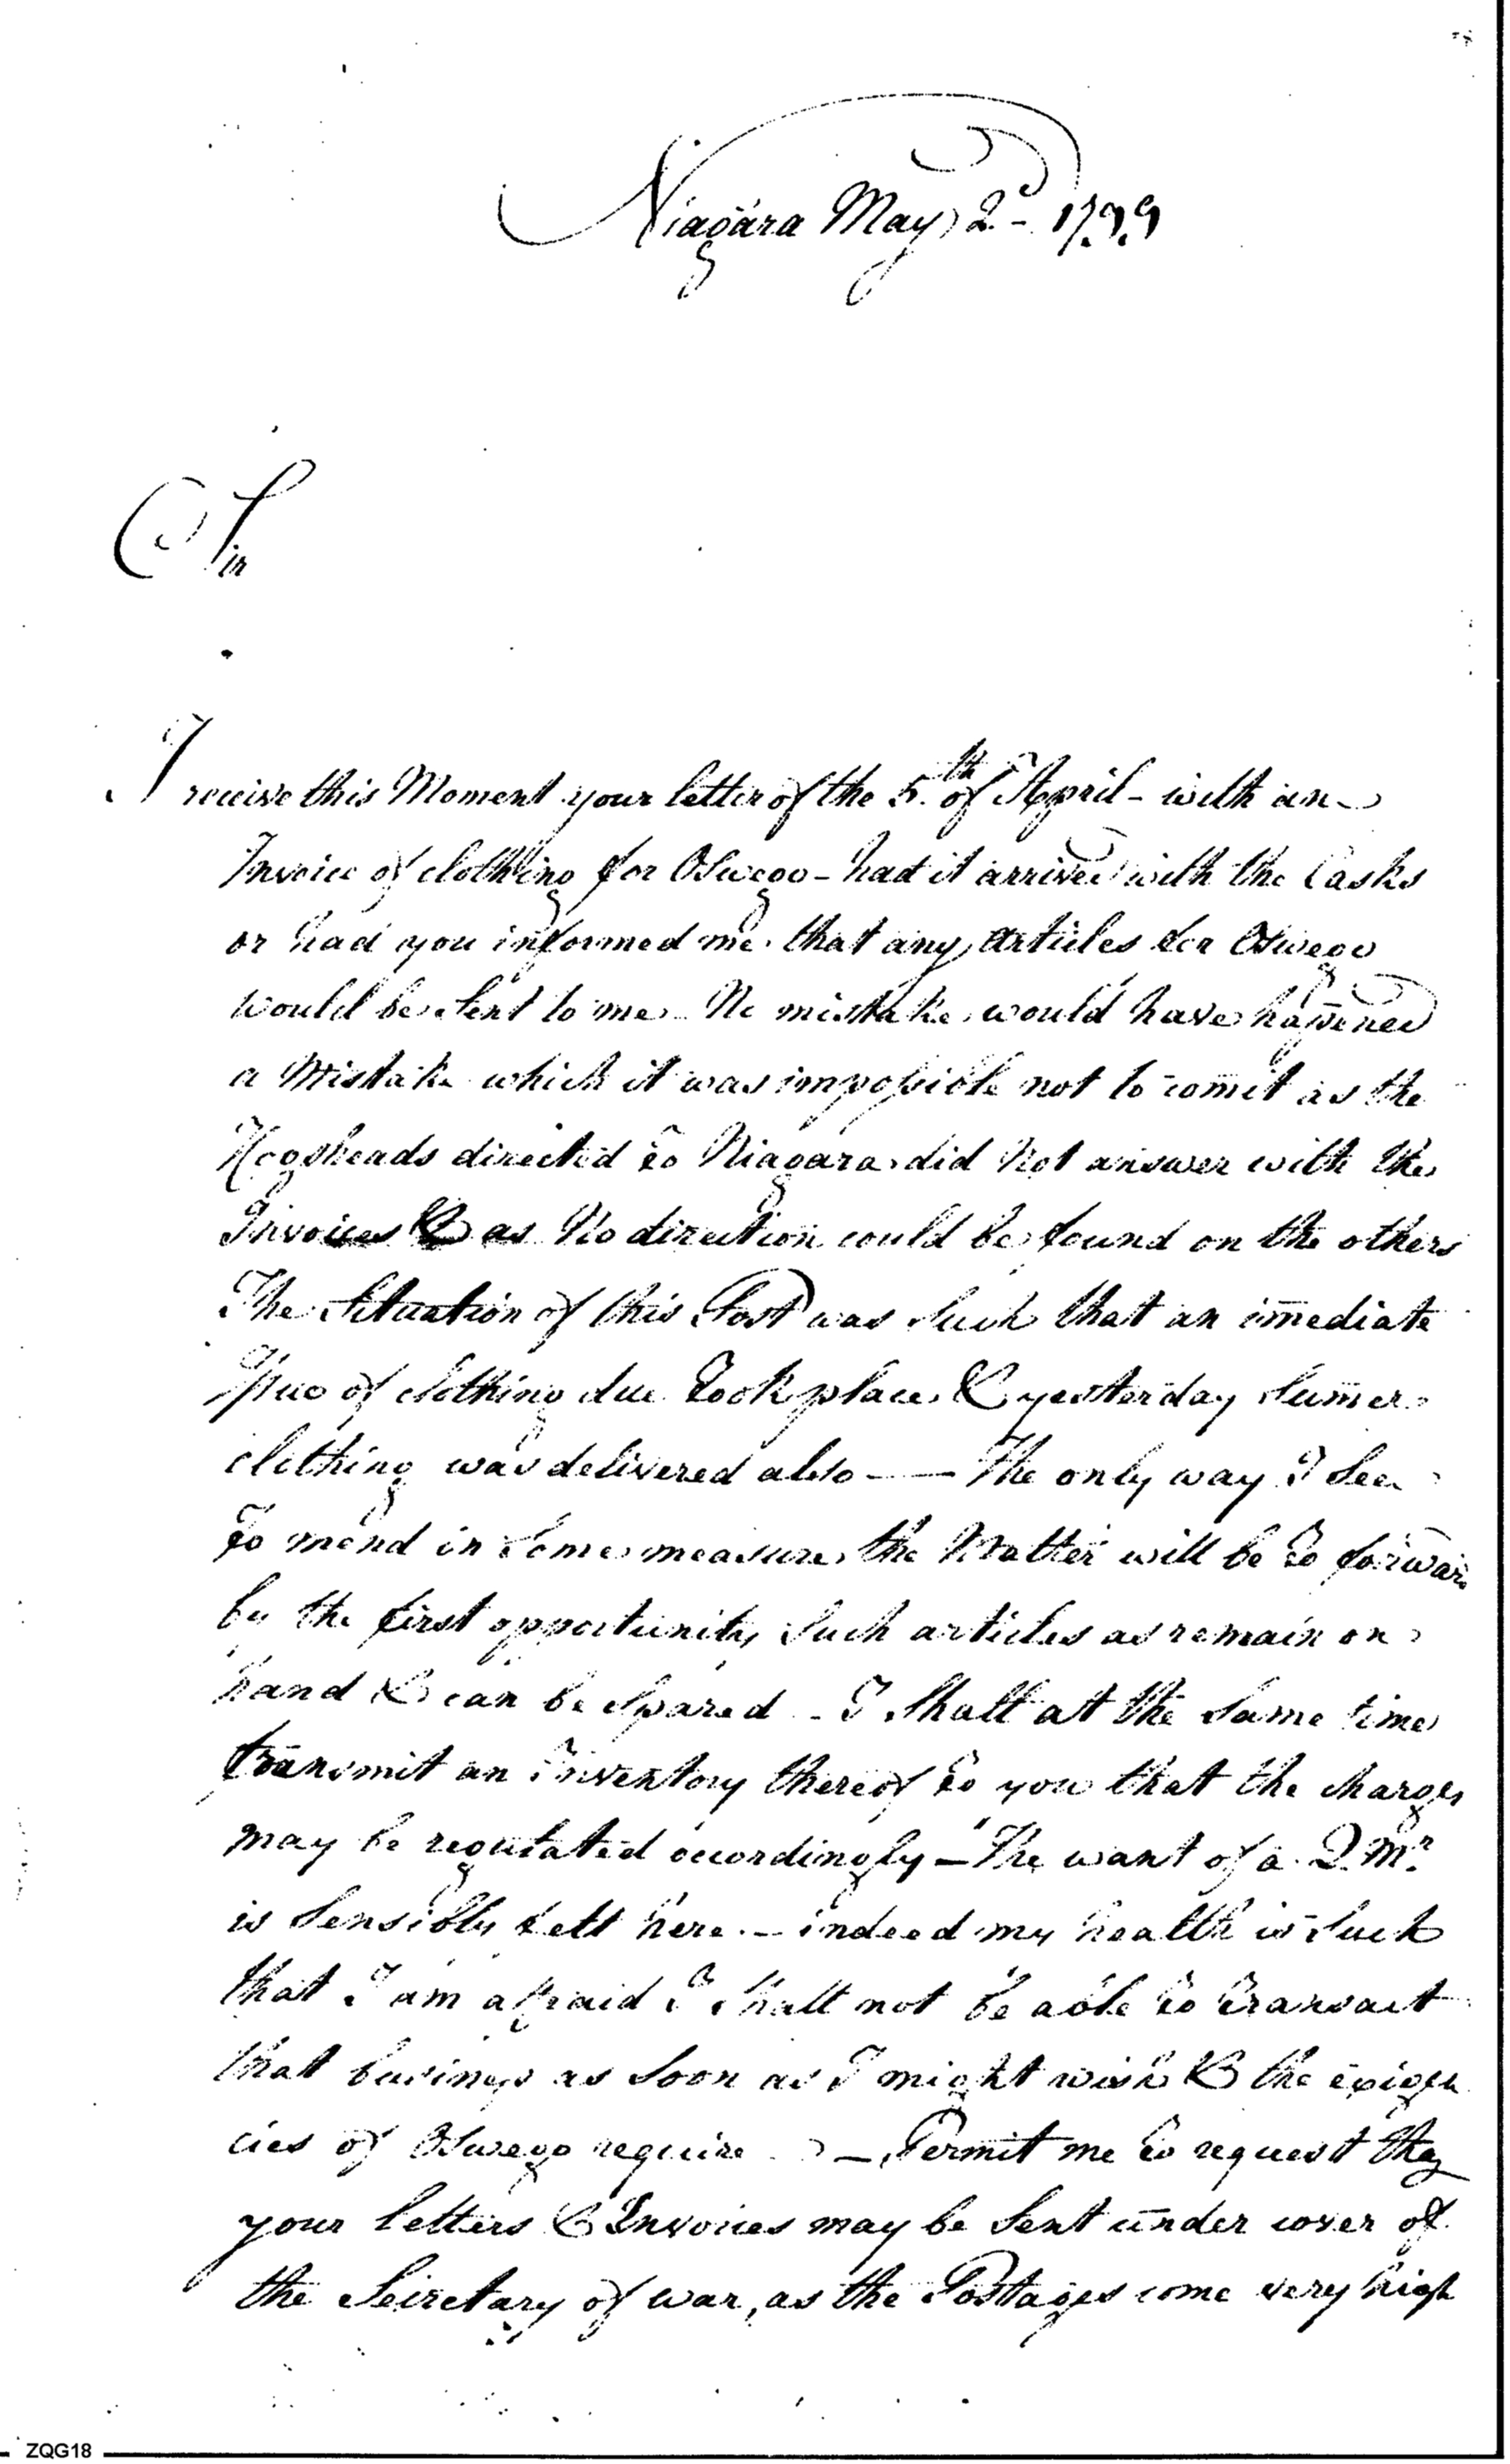 Niagara May 2d 1799
Sir
I receive this Moment your letter of the 5.th of April - with an
Invoice of clothing for Oswego - had it arrived with the Casks
or had you informed me that any articles for Oswego
would be Sent to me. No mistake would have hapened
a Mistake which it was impossible not to comit as the
Hogsheads directed to Niagara did Not answer with the
Invoices & as No direction could be found on the others
The Situation of this Post was Such that an imediate
Issue of clothing due took place & yesterday Sumer
clothing was delivered also - — The only way I See
to mend in Some measure the Matter will be to forward
by the first opportunity Such articles as remain on
hand & can be Spared - I Shall at the Same time
transmit an inventory thereof to you that the charges
may be regulated accordingly — The want of a Q. Mr.
is Sensibly felt here. — indeed my health is Such
that I am afraid I Shall not be able to transact
that business as Soon as I might wish & the exigen
cies of Oswego require — Permit me to request that
your letters & Invoices may be Sent under cover of
the Secretary of war, as the Postages come very high
ZQG18